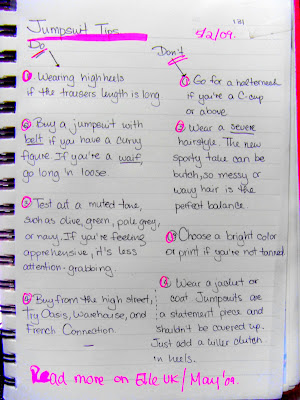 181
Jumpsuit Tips
5/2/09.
Do
1 Wearing high heels
if the trousers length is long
2 Buy a jumpsuit with
belt if you have a curvy
figure. If you're a waif,
go long 'n loose.
3 Test out a muted tone,
such as olive, green, pale grey,
or navy. If you're feeling
apprehensive, it's less
attention-grabbing.
4 Buy from the high street,
Try Oasis, Warehouse, and
French Connection.
Don't
1 Go for a halterneck
if you're a C-cup
or above
2 Wear a severe
hairstyle. The new
sporty take can be
butch, so messy or
wavy hair is the
perfect balance.
3 Choose a bright color
or print if you're not tanned
4 Wear a jacket or
coat. Jumpsuits are
a statement piece and
shouldn't be covered up.
Just add a killer clutch
'n heels.
Read more on Elle UK/May'09.